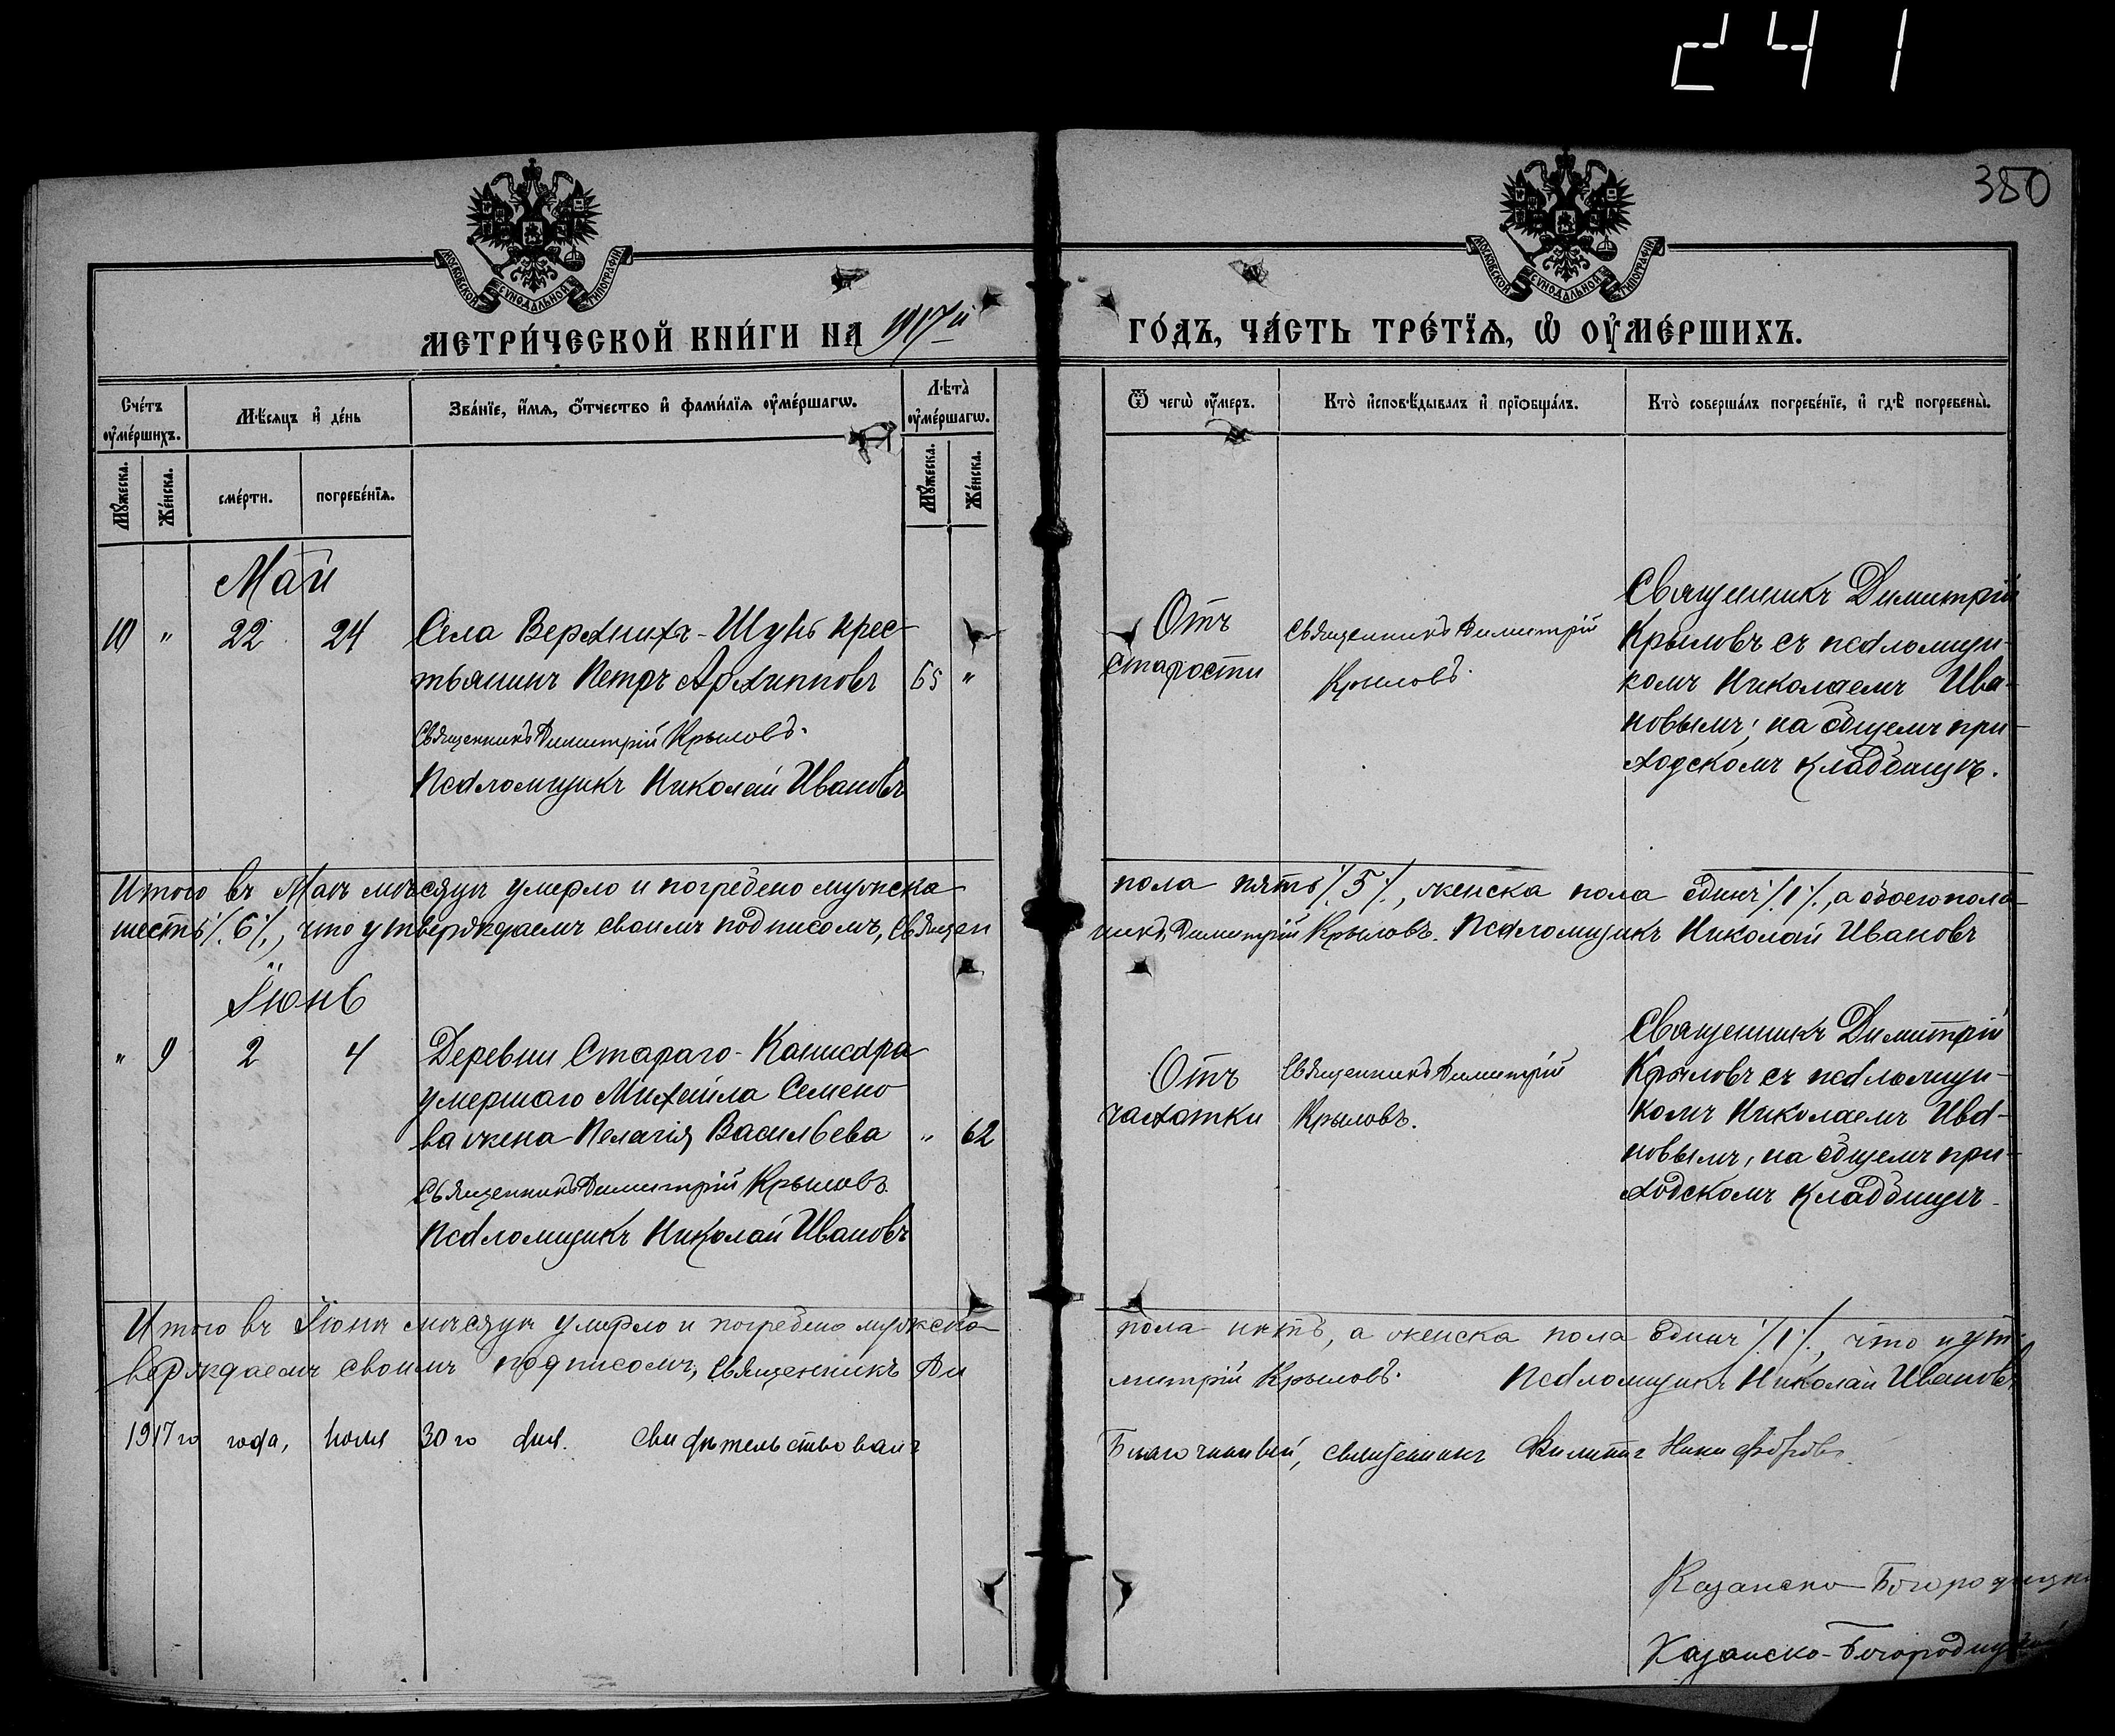 241
380
МОСКОВСКОЙ СѴНОДАЛЬНОЙ ТИПОГРАФІИ
МОСКОВСКОЙ СѴНОДАЛЬНОЙ ТИПОГРАФІИ
МЕТРИ́ЧЕСКОЙ КНИ́ГИ НА 1917й
ГО́ДЪ, ЧА́СТЬ ТРЕ́ТЇѦ, Ѡ҆ ОУ҆МЕ́РШИХЪ.
Сче́тъ оу҆ме́ршихъ.
Мѣ́сяцъ и҆ де́нь
Зва́нїе, и҆́мѧ, ѻ҆́тчество и҆ фами́лїѧ оу҆ме́ршагѡ.
Лѣ́та̀ оу҆ме́ршагѡ.
Ѿ чегѡ̀ оу҆́меръ.
Кто̀ и҆сповѣ́дывалъ и҆ прїѡбща́лъ.
Кто̀ соверша́лъ погребе́нїе, и҆ гдѣ̀ погребены̀.
Мꙋ́жеска.
Же́нска.
сме́рти.
погребе́нїѧ.
Мꙋ́жеска.
Же́нска.
Май
10 " 22 24
Села Верхнихъ-Шунь крес-
тьянинъ Петръ Архипповъ 65 "
Священникъ Димитрій Крыловъ.
Псаломщикъ Николай Ивановъ
Отъ
старости
Священникъ Димитрій
Крыловъ.
Священникъ Димитрій
Крыловъ съ псаломщи-
комъ Николаемъ Ива-
новымъ; на общемъ при-
ходскомъ кладбищѣ.
Итого въ Маѣ мѣсяцѣ умерло и погребено мужска пола пять /.5./, женска пола одинъ /.1./, а обоего пола
шесть /.6./, что утверждаемъ своимъ подписомъ, Священникъ Димитрій Крыловъ. Псаломщикъ Николай Ивановъ
Іюнь
" 9 2 4
Деревни Стараго-Канисара
умершаго Михаила Семено
ва жена Пелагія Васильева " 62
Священникъ Димитрій Крыловъ
Псаломщикъ Николай Ивановъ
Отъ
чахотки
Священникъ Димитрій
Крыловъ.
Священникъ Димитрій
Крыловъ съ псаломщи-
комъ Николаемъ Ива-
новымъ, на общемъ при-
ходскомъ кладбищѣ.
Итого въ Іюнѣ мѣсяцѣ умерло и погребено мужска пола нѣтъ, а женска пола одинъ /.1./, что и ут-
верждаемъ своимъ подписомъ, Священникъ Димитрій Крыловъ. Псаломщикъ Николай Ивановъ
1917го года, Іюля 30го дня. Свидѣтельствовалъ Благочинный, священникъ Филиппъ Никифоровъ.
Казанско-Богородицк
Казанско-Богородиц